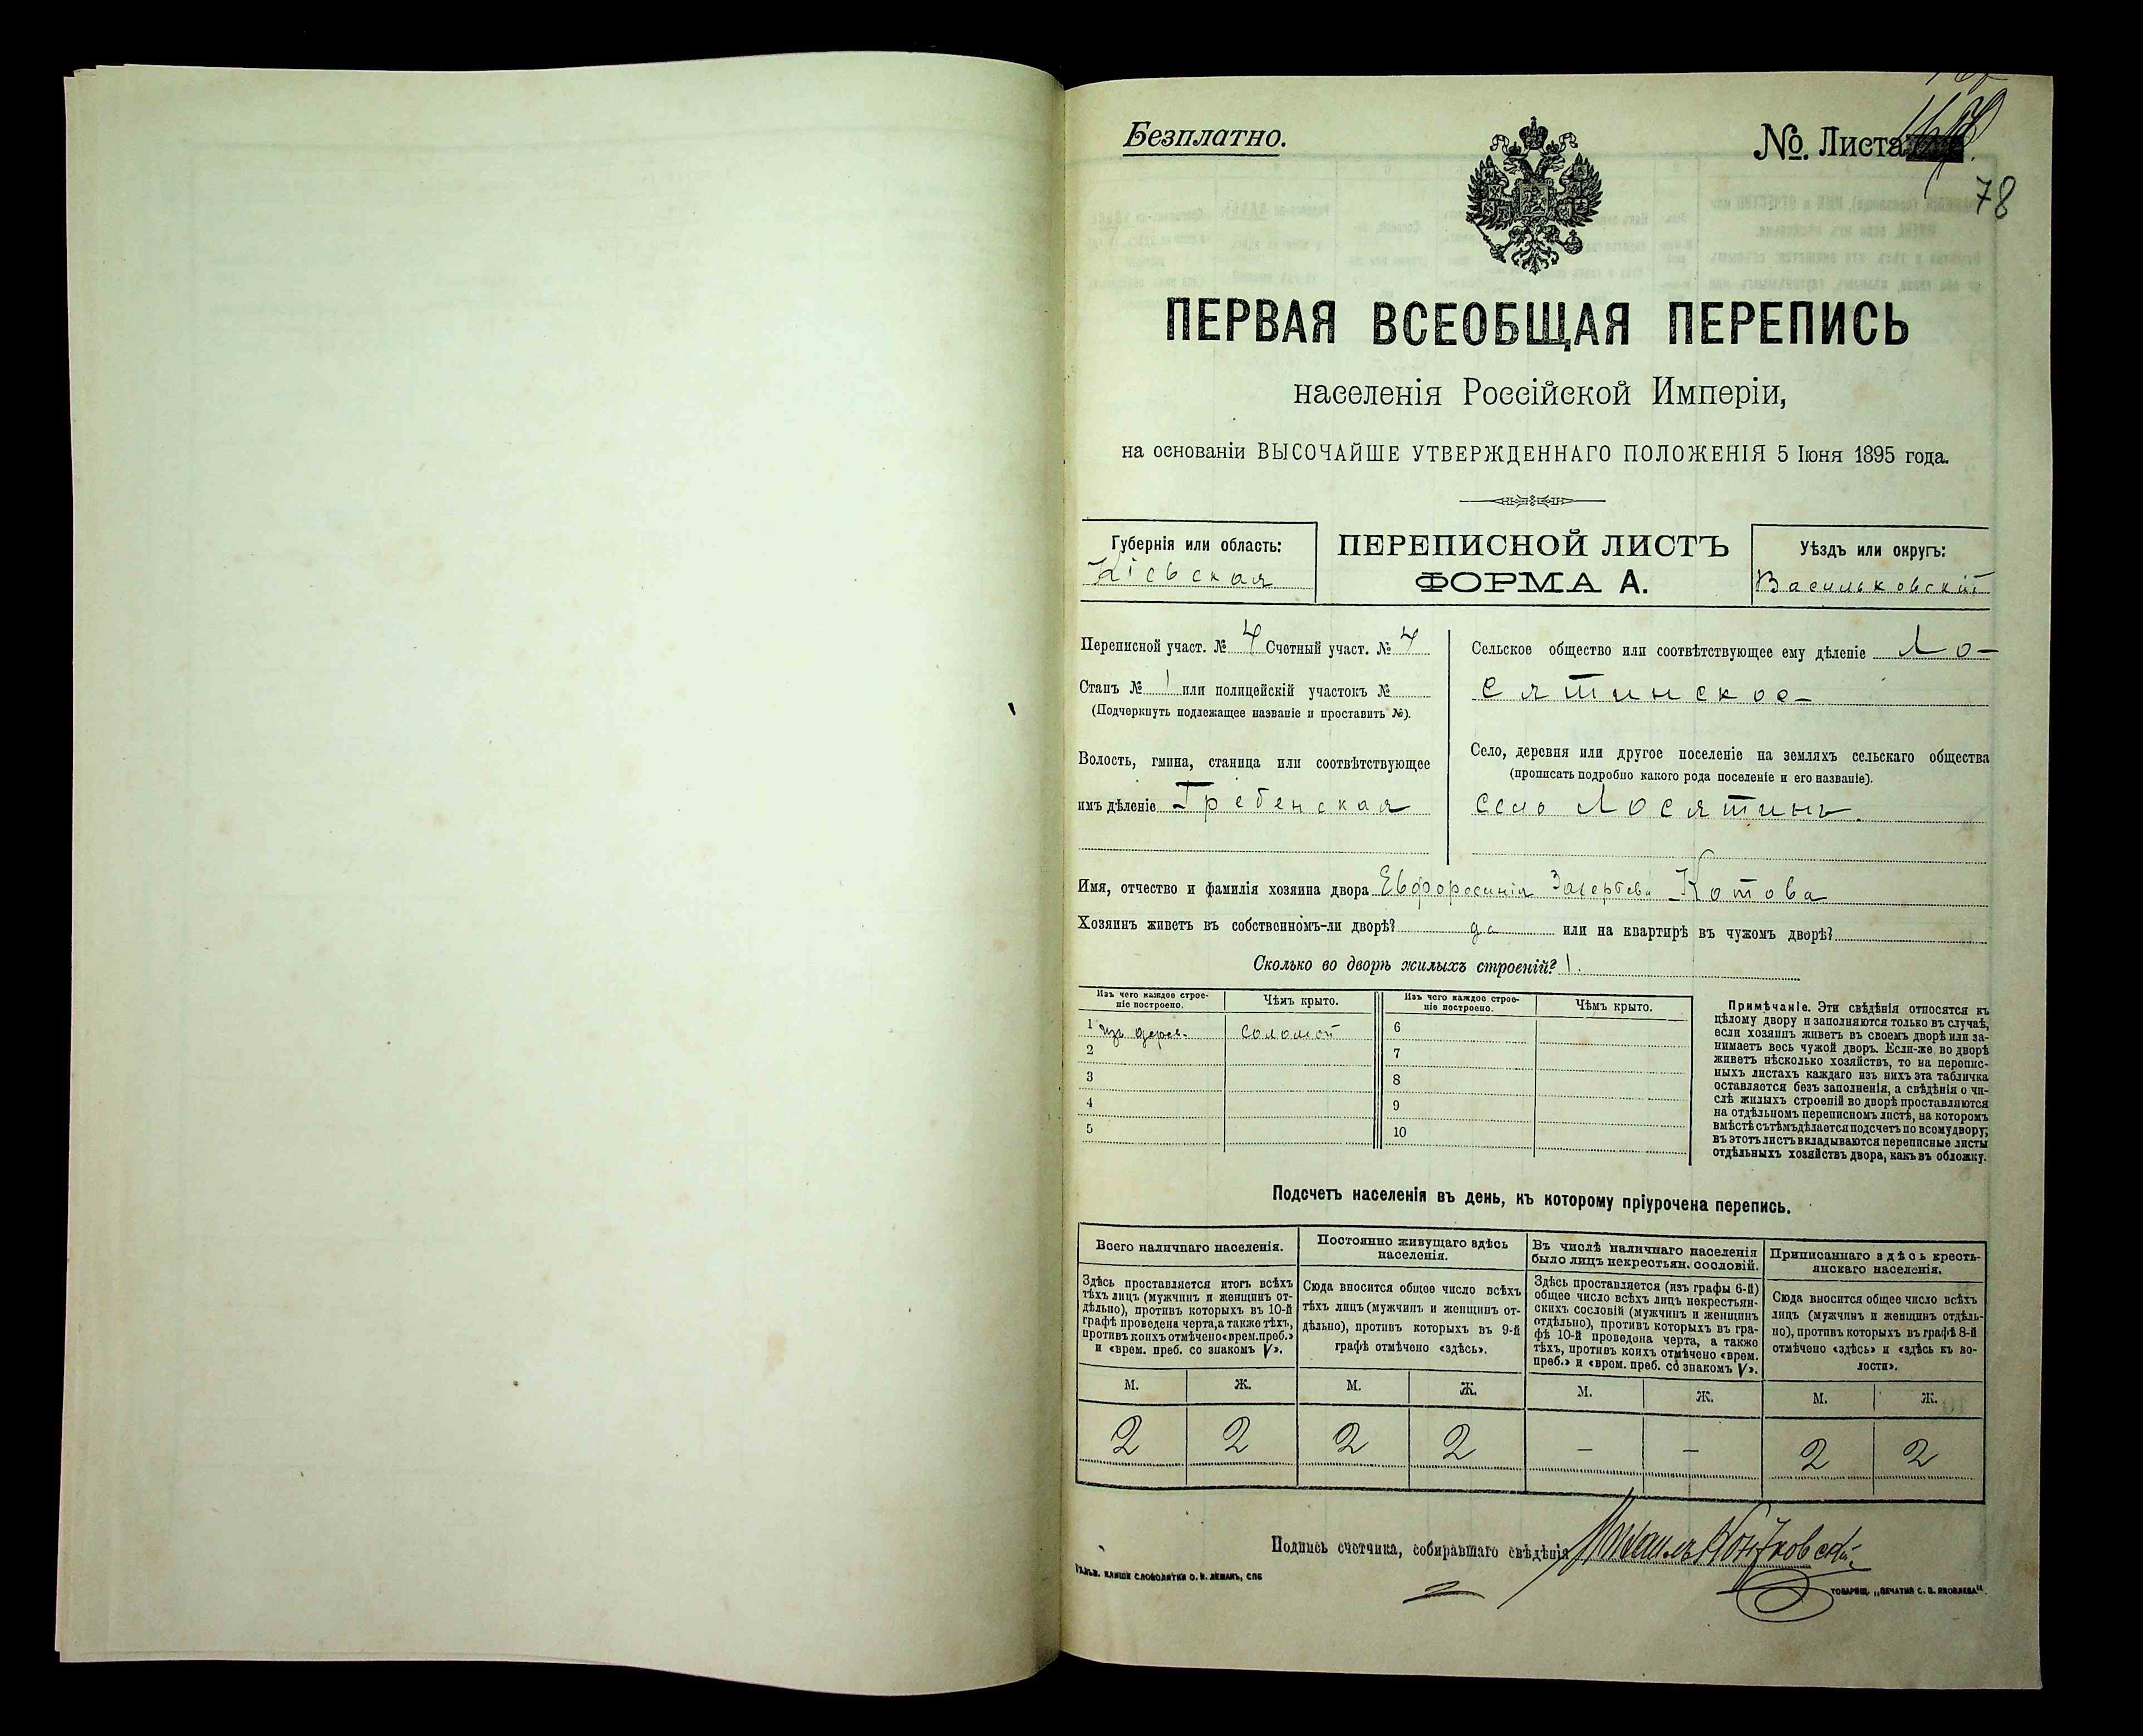 Безплатно.
№. Листа
78
ПЕРВАЯ ВСЕОБЩАЯ ПЕРЕПИСЬ
населенія Россійской Имперіи,
на основаніи ВЫСОЧАЙШЕ УТВЕРЖДЕННАГО ПОЛОЖЕНІЯ 5 Іюня 1895 года.
Губернія или область:
Кіевская
ПЕРЕПИСНОЙ ЛИСТЪ
ФОРМА А.
Уѣздъ или округъ:
Васильковскій
Переписной участ. № 4 Счетный участ. № 4
Станъ № 1 или полицейскій участокъ №
(Подчеркнуть подлежащее названіе и проставить №).
Волость, гмина, станица или соотвѣтствующее
имъ дѣленіе Гребенская
Сельское общество или соотвѣтствующее ему дѣленіе Ло-
сятинское
Село, деревня или другое поселеніе на земляхъ сельскаго общества
(прописать подробно какого рода поселеніе и его названіе).
село Лосятинъ.
Имя, отчество и фамилія хозяина двора Евфросинія Котова
Хозяинъ живетъ въ собственномъ-ли дворѣ? да или на квартирѣ въ чужомъ дворѣ?
Сколько во дворѣ жилыхъ строеній? 1.
Изъ чего каждое строе-
ніе построено.
Чѣмъ крыто.
Изъ чего каждое строе-
ніе построено.
Чѣмъ крыто.
1 изъ дерев. соломой
2
3
4
5
6
7
8
9
10
Примѣчаніе. Эти свѣдѣнія относятся къ
цѣлому двору и заполняются только въ случаѣ,
если хозяинъ живетъ въ своемъ дворѣ или за-
нимаетъ весь чужой дворъ. Если-же во дворѣ
живетъ нѣсколько хозяйствъ, то на перепис-
ныхъ листахъ каждаго изъ нихъ эта табличка
оставляется безъ заполненія, а свѣдѣнія о чи-
слѣ жилыхъ строеній во дворѣ проставляются
на отдѣльномъ переписномъ листѣ, на которомъ
вмѣстѣ съ тѣмъ дѣлается подсчетъ по всему двору;
въ этотъ листъ вкладываются переписные листы
отдѣльныхъ хозяйствъ двора, какъ въ обложку.
Подсчетъ населенія въ день, къ которому пріурочена перепись.
Всего наличнаго населенія.
Здѣсь проставляется итогъ всѣхъ
тѣхъ лицъ (мужчинъ и женщинъ от-
дѣльно), противъ которыхъ въ 10-й
графѣ проведена черта, а также тѣхъ,
противъ коихъ отмѣчено «врем. преб.»
и «врем. преб. со знакомъ V».
Постоянно живущаго здѣсь
населенія.
Сюда вносится общее число всѣхъ
тѣхъ лицъ (мужчинъ и женщинъ от-
дѣльно), противъ которыхъ въ 9-й
графѣ отмѣчено «здѣсь».
Въ числѣ наличнаго населенія
было лицъ некрестьян. сословій.
Здѣсь проставляется (изъ графы 6-й)
общее число всѣхъ лицъ некрестьян-
скихъ сословій (мужчинъ и женщинъ
отдѣльно), противъ которыхъ въ гра-
фѣ 10-й проведена черта, а также
тѣхъ, противъ коихъ отмѣчено «врем.
преб.» и «врем. преб. со знакомъ V».
Приписаннаго здѣсь кресть-
янскаго населенія.
Сюда вносится общее число всѣхъ
лицъ (мужчинъ и женщинъ отдѣль-
но), противъ которыхъ въ графѣ 8-й
отмѣчено «здѣсь» и «здѣсь къ во-
лости».
М. Ж. М. Ж. М. Ж. М. Ж.
2 2 2 2 – – 2 2
Подпись счетчика, собиравшаго свѣдѣнія
ТОВАРИЩ. „ПЕЧАТНЯ С. П. ЯКОВЛЕВА“.